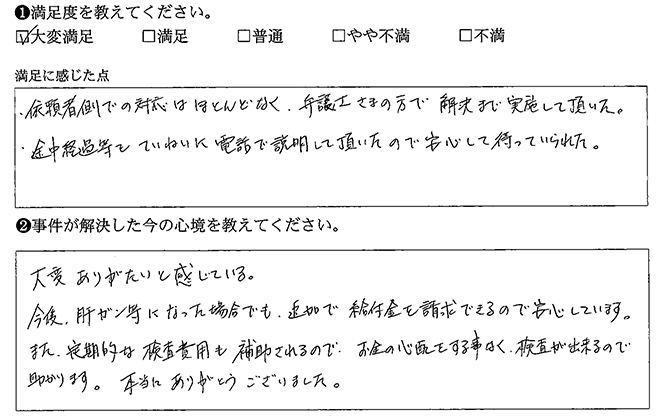 ❶満足度を教えてください。
☑大変満足 □満足 □普通 □やや不満 □不満
満足に感じた点
・依頼者側での対応はほとんどなく、弁護士さまの方で解決まで実施して頂いた。
・途中経過等もていねいに電話で説明して頂いたので安心して待っていられた。
❷事件が解決した今の心境を教えてください。
大変ありがたいと感じている。
今後、肝ガン等になった場合でも、追加で給付金を請求できるので安心しています。
また、定期的な検査費用も補助されるので、お金の心配をする事なく、検査が出来るので
助かります。本当にありがとうございました。